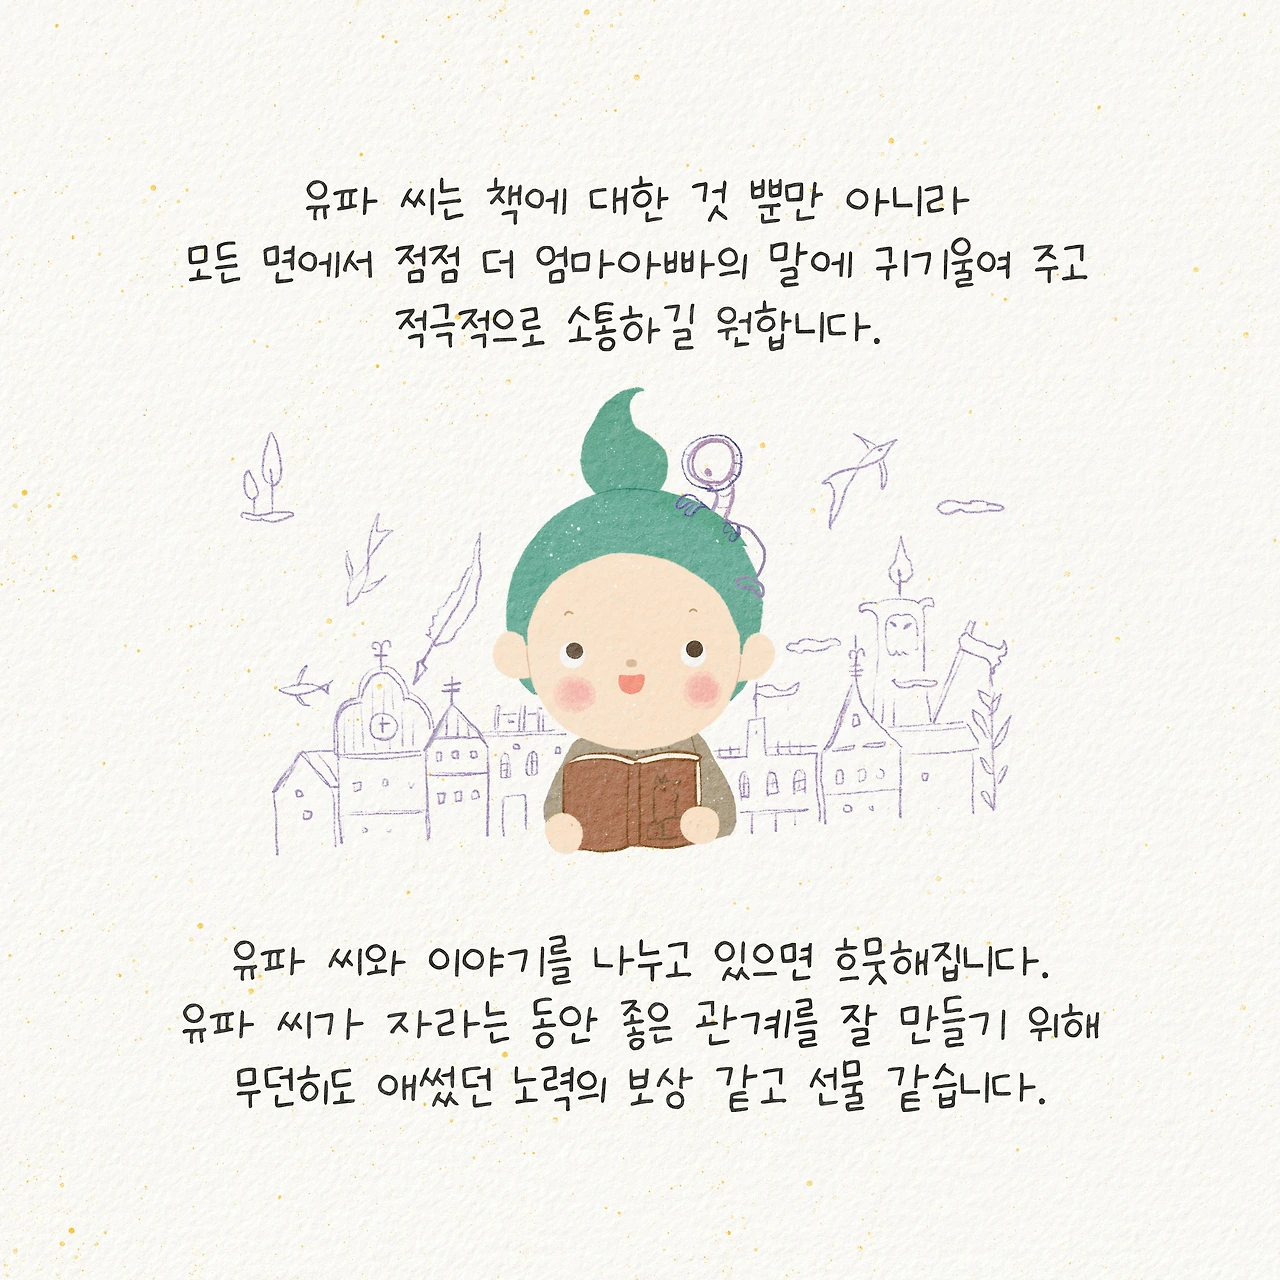 유파 씨는 책에 대한 것 뿐만 아니라
모든 면에서 점점 더 엄마아빠의 말에 귀기울여 주고
적극적으로 소통하길 원합니다.
유파 씨와 이야기를 나누고 있으면 흐뭇해집니다.
유파 씨가 자라는 동안 좋은 관계를 잘 만들기 위해
무던히도 애썼던 노력의 보상 같고 선물 같습니다.